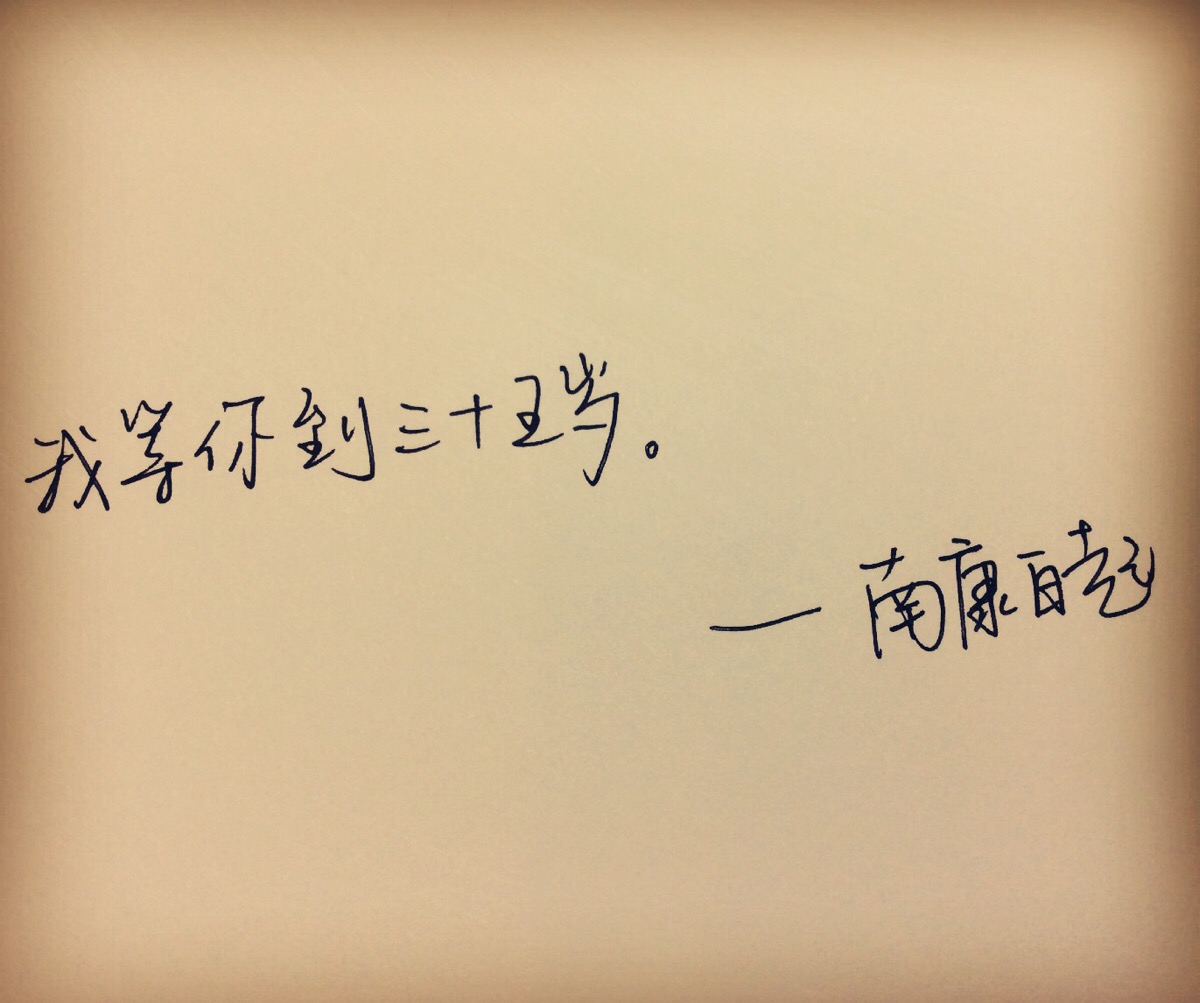 我等你到三十五岁。
— 南康白起